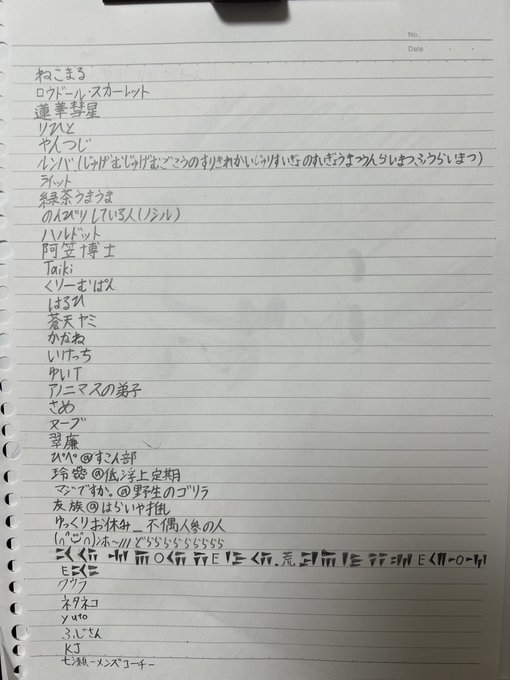 No.
Date
ねこまる
ロウドール・スカーレット
蓮華彗星
りひと
やんつじ
ルンバ.(じゅげむじゅげむごこうのすりきれかいじゃりすいぎょのすいぎょうまつうんらいまつふうらいまつ)
ライット
緑茶うまうま
のんびりしている人(ノシル)
ハルドット
阿笠博士
Taiki
くりーむぱん
はるひ
蒼天ヤミ
かなね
いけっち
ゆいT
アノニマスの弟子
さめ
ヌーブ
翠廉
ぴぺ@すこん部
玲 @低浮上定期
マジですか。@野生のゴリラ
友族@はらいや推し
ゆっくりお休み_不偶人参の人
どららららららら
荒
クウラ
ネタネコ
yuto
ふじさん
KJ
七瀬-メンズコーチ-